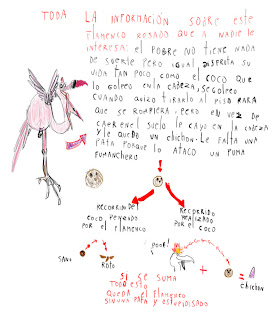 TODA LA INFORMACIÓN SOBRE ESTE
FLAMENCO ROSADO QUE A NADIE LE
INTERESA: EL POBRE NO TIENE NADA
DE SUERTE PERO IGUAL DISFRUTA SU
VIDA TAN POCO COMO EL COCO QUE
LO GOLPEO EN LA CABEZA, SE GOLPEO
CUANDO QUIZO TIRARLO AL PISO PARA
QUE SE ROMPIERA, PERO EN VEZ DE
CAER EN EL SUELO LE CAYO EN LA CABEZA
Y LE QUEDO UN CHICHON. LE FALTA UNA
PATA PORQUE LO ATACO UN PUMA
FUMANCHERO
RECORRIDO DEL
COCO PENSADO
POR EL FLAMENCO
RECORRIDO
REALIZADO
POR EL COCO
SANO
ROTO
POOF!
+
=
CHICHON
SI SE SUMA
TODO ESTO
QUEDA EL FLAMENCO
SIN UNA PATA Y ESTUPIDISADO